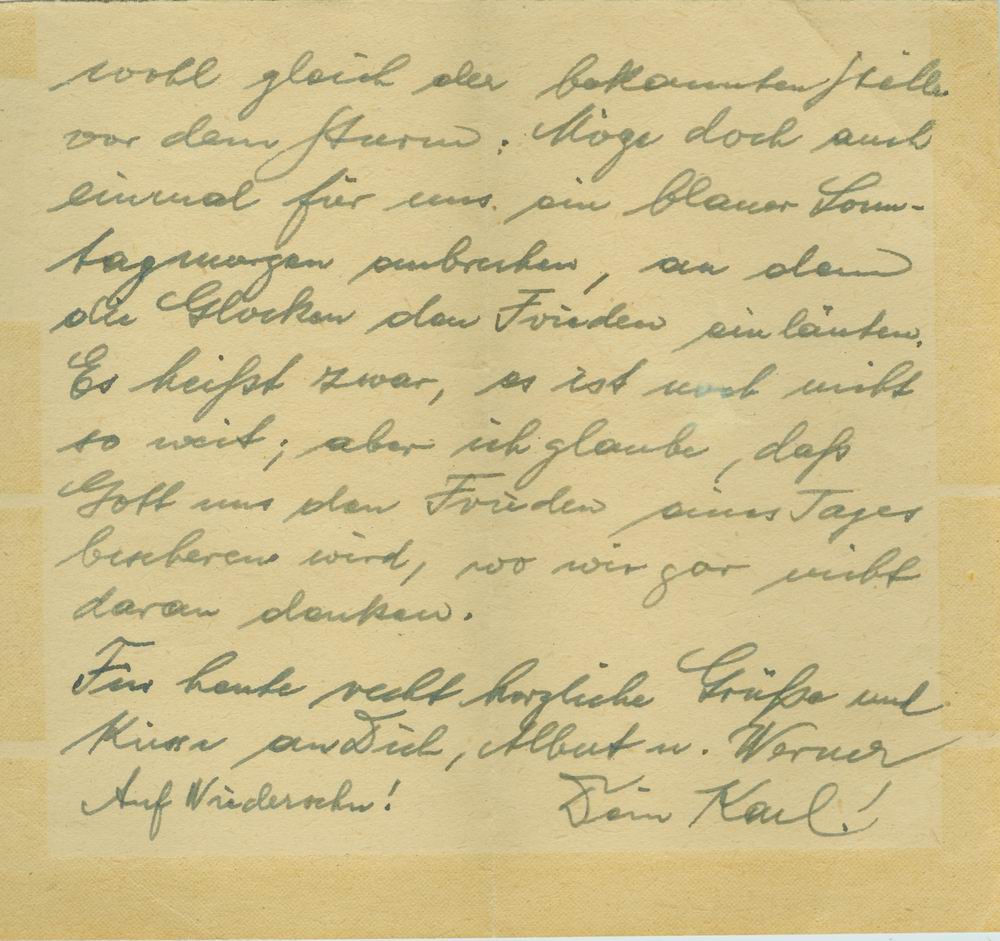 wohl gleich der bekannten Stille
vor dem Sturm. Möge doch auch
einmal für uns ein blauer Sonn-
tagmorgen anbrechen, an dem
die Glocken den Frieden einläuten.
Es heißt zwar, es ist noch nicht
so weit; aber ich glaube, daß
Gott uns den Frieden eines Tages
bescheren wird, wo wir gar nicht
daran denken.
Für heute recht herzliche Grüße und
Küsse an Dich, Albert u. Werner
Auf Wiedersehn! Dein Karl!